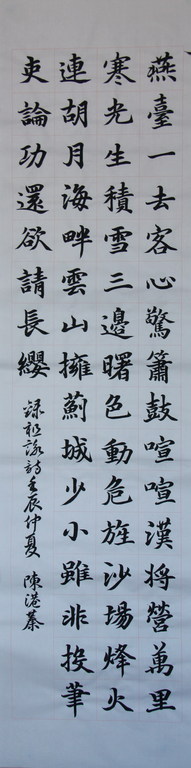 燕臺一去客心驚簫鼓喧喧漢將營萬里
寒光生積雪三邊曙色動危旌沙場烽火
連胡月海畔雲山擁薊城少小雖非投筆
吏論功還欲請長纓
録祖詠詩壬辰仲夏 陳港蓁